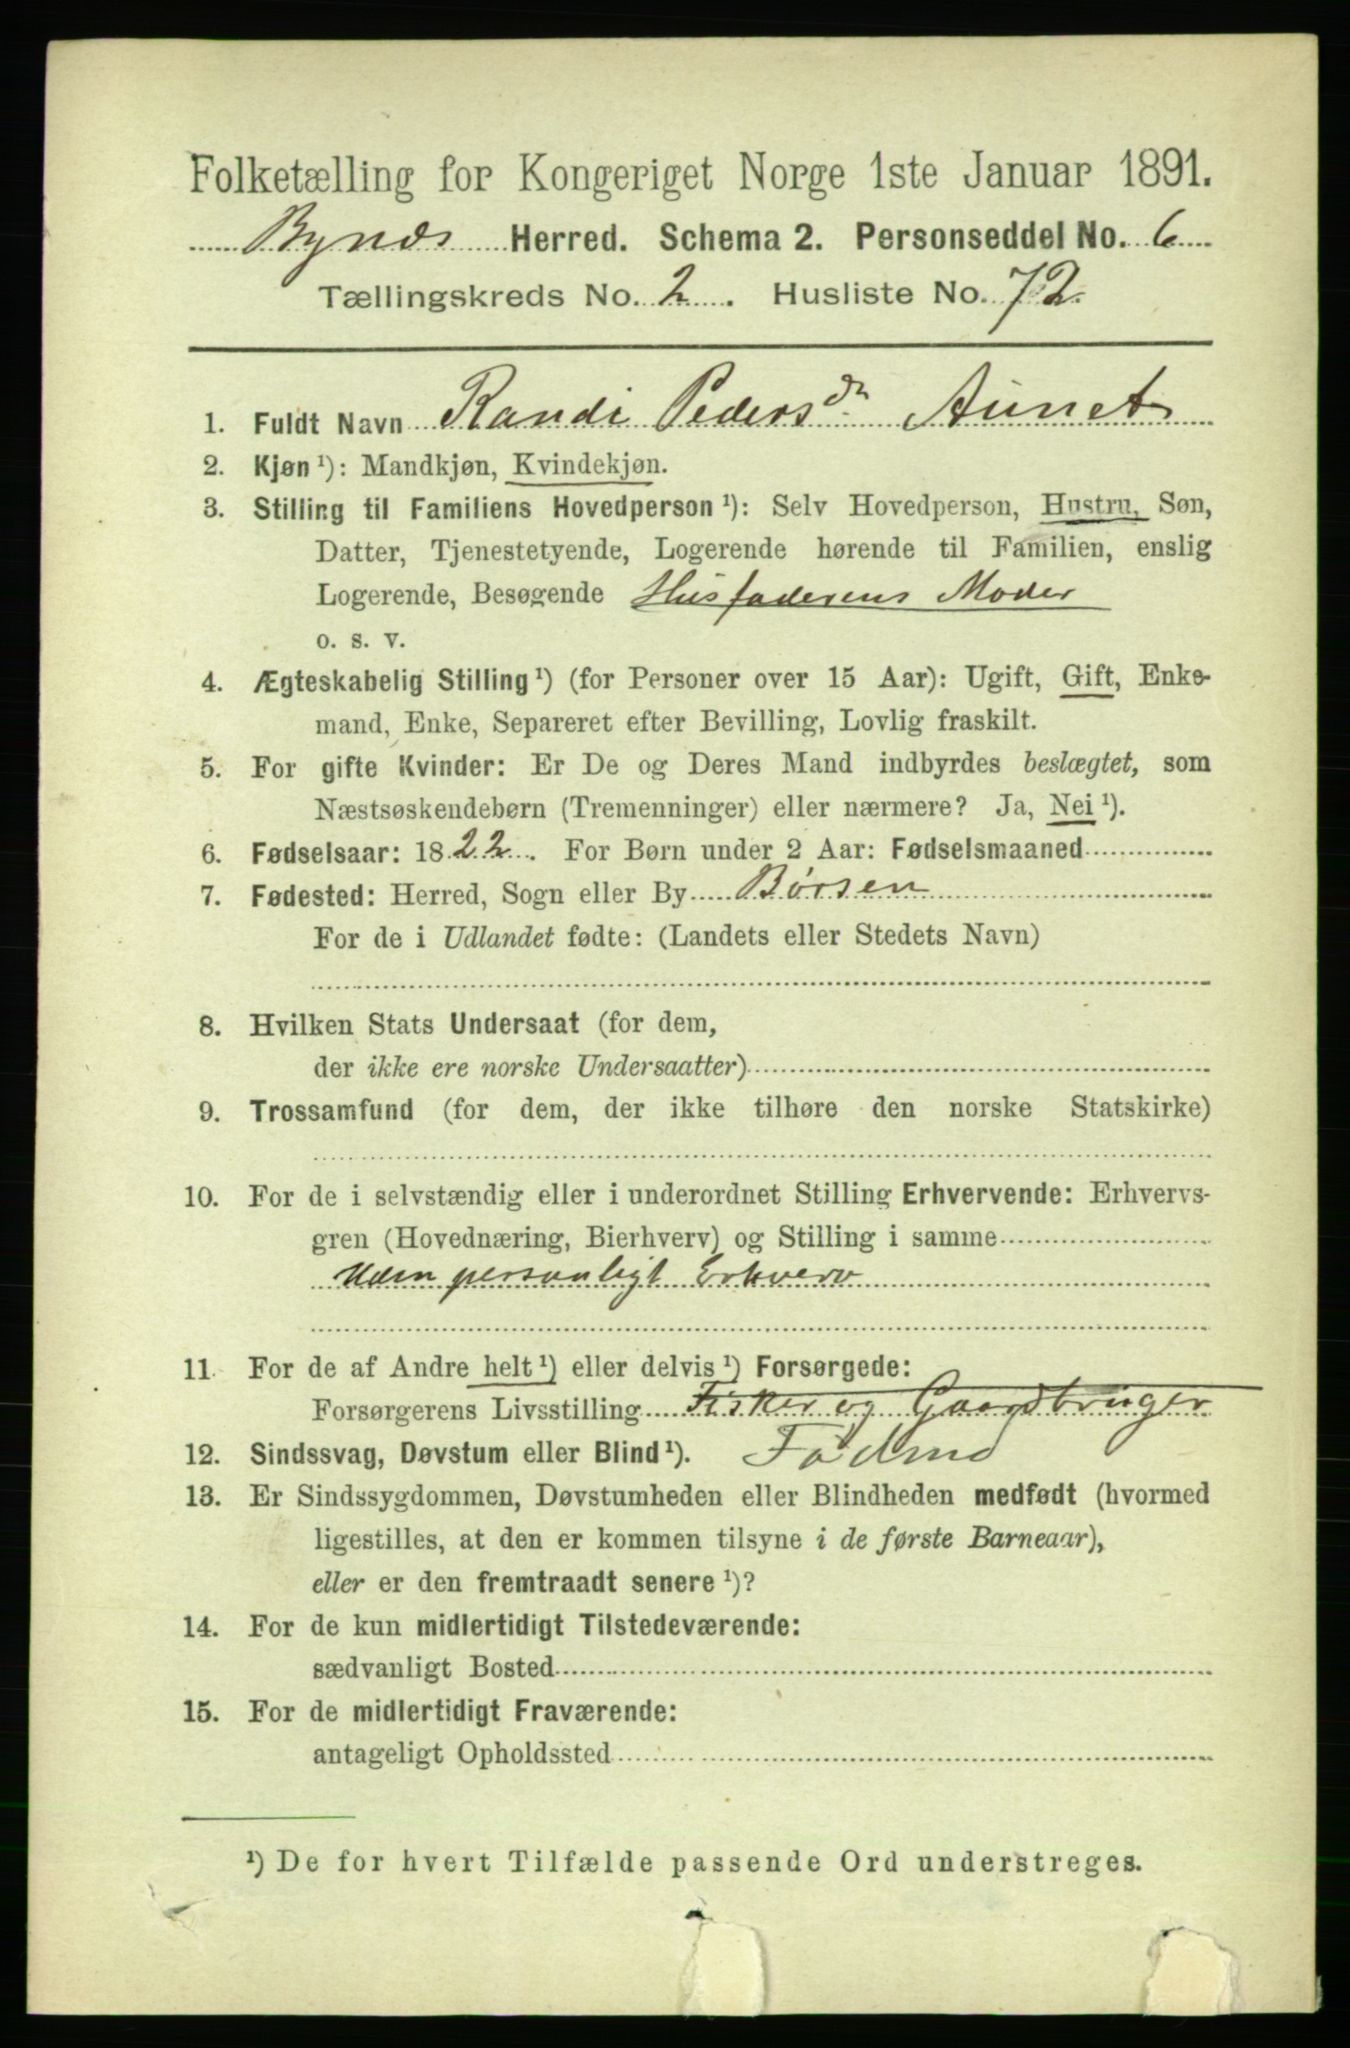 Folketælling for Kongeriget Norge 1ste Januar 1891.
Bynes Herred. Schema 2. Personseddel No. 6
Tællingskreds No. 2. Husliste No. 72.
1. Fuldt Navn Randi Pedersdn Aunet
2. Kjøn ¹): Mandkjøn, Kvindekjøn.
3. Stilling til Familiens Hovedperson ¹): Selv Hovedperson, Hustru, Søn,
Datter, Tjenestetyende, Logerende hørende til Familien, enslig
Logerende, Besøgende Husfaderens Moder
o. s. v.
4. Ægteskabelig Stilling ¹) (for Personer over 15 Aar): Ugift, Gift, Enke-
mand, Enke, Separeret efter Bevilling, Lovlig fraskilt.
5. For gifte Kvinder: Er De og Deres Mand indbyrdes beslægtet, som
Næstsøskendebørn (Tremenninger) eller nærmere? Ja, Nei ¹).
6. Fødselsaar: 1822. For Børn under 2 Aar: Fødselsmaaned
7. Fødested: Herred, Sogn eller By Børsen
For de i Udlandet fødte: (Landets eller Stedets Navn)
8. Hvilken Stats Undersaat (for dem,
der ikke ere norske Undersaatter)
9. Trossamfund (for dem, der ikke tilhøre den norske Statskirke)
10. For de i selvstændig eller i underordnet Stilling Erhvervende: Erhvervs-
gren (Hovednæring, Bierhverv) og Stilling i samme
Uden personligt Erhverv
11. For de af Andre helt ¹) eller delvis ¹) Forsørgede:
Forsørgerens Livsstilling Fisker og Gaardbruger
12. Sindssvag, Døvstum eller Blind ¹).
13. Er Sindssygdommen, Døvstumheden eller Blindheden medfødt (hvormed
ligestilles, at den er kommen tilsyne i de første Barneaar),
eller er den fremtraadt senere ¹)?
14. For de kun midlertidigt Tilstedeværende:
sædvanligt Bosted
15. For de midlertidigt Fraværende:
antageligt Opholdssted
¹) De for hvert Tilfælde passende Ord understreges.